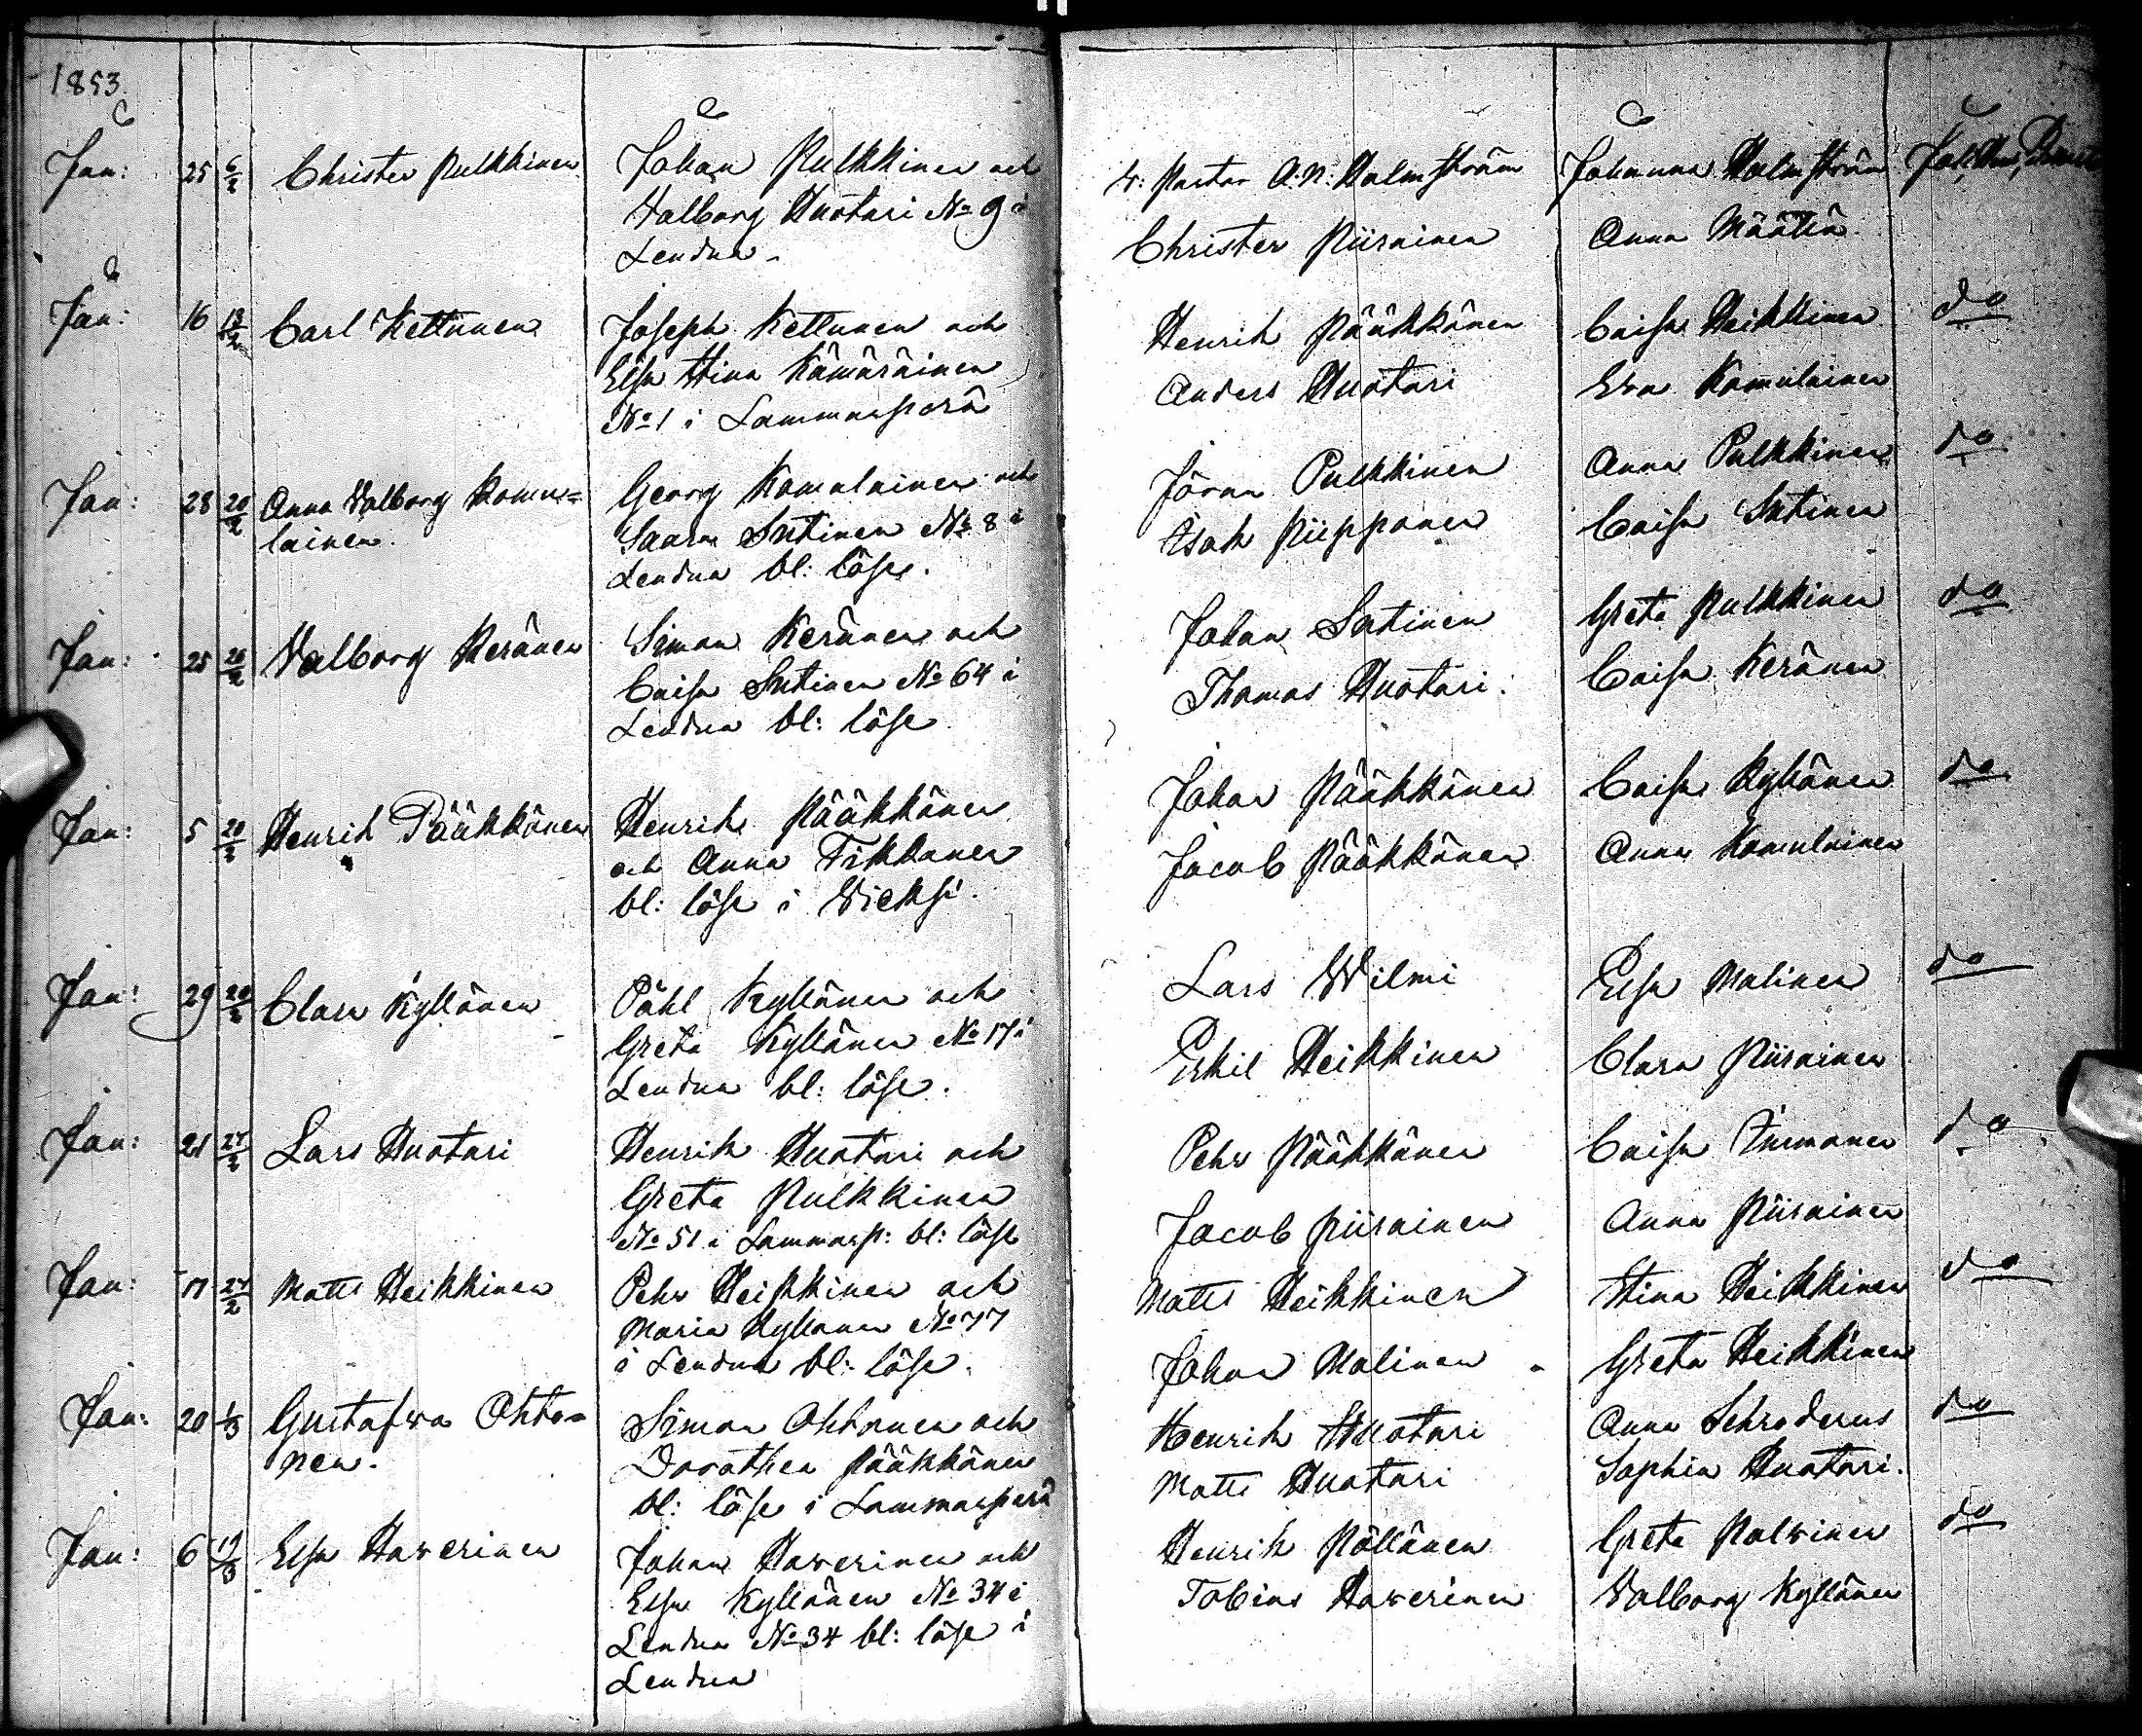 1853
Jan: 25 6/2 Christer Pulkkinen
Johan Pulkkinen och
Walborg Huotari No 9 i
Lendua.
v: Pastor A. N: Holmström Johanna Holmström
Christer Piirainen Anna Määttä
Jan: 16 13/2 Carl Kettunen
Joseph Kettunen och
Elsa Stina Kämäräinen
No 1 i Lammasperä
Henrik Pääkkönen Caisa Heikkinen do
Anders Huotari Eva Komulainen
Jan: 28 20/2 Anna Walborg Komu=
lainen.
Georg Komulainen och
Saara Sutinen No 8 i
Lendua bl: löse.
Jöran Pulkkinen Anna Pulkkinen do
Isak Piipponen Caisa Sutinen
Jan: 25 20/2 Walborg Keränen
Simon Keränen och
Caisa Sutinen No 64 i
Lendua bl: löse
Johan Sutinen Greta Pulkkinen do
Thomas Huotari. Caisa Keränen
Jan: 5 20/2 Henrik Pääkkönen
Henrik Pääkkönen
och Anna Tikkanen
bl: löse i Wieksi.
Johan Pääkkönen Caisa Kyllönen do
Jacob Pääkkönen Anna Komulainen
Jan: 29 20/2 Clara Kyllönen
Påhl Kyllönen och
Greta Kyllönen No 17 i
Lendua bl: löse.
Lars Wilmi Elsa Malinen do
Eskil Heikkinen Clara Piirainen
Jan: 21 27/2 Lars Huotari
Henrik Huotari och
Greta Pulkkinen
No 51 i Lammasp: bl: löse
Pehr Pääkkönen Caisa do
Jacob Piirainen Anna Piirainen
Jan: 17 27/2 Matts Heikkinen
Pehr Heikkinen och
Maria Kyllönen No 77
i Lendua bl: löse.
Matts Heikkinen Stina Heikkinen do
Johan Malinen Greta Heikkinen
Jan: 20 1/3 Gustafva Ohto=
nen.
Simon Ohtonen och
Dorothea Pääkkönen
bl: löse i Lammasperä
Henrik Huotari Anna Schroderus do
Matts Huotari Sophia Huotari.
Jan: 6 Elsa Haverinen
Johan Haverinen och
Elsa Kyllönen No 34 i
Lendua No 34 bl: löse i
Lendua
Henrik Pöllänen Greta Polvinen do
Tobias Haverinen Walborg Kyllönen